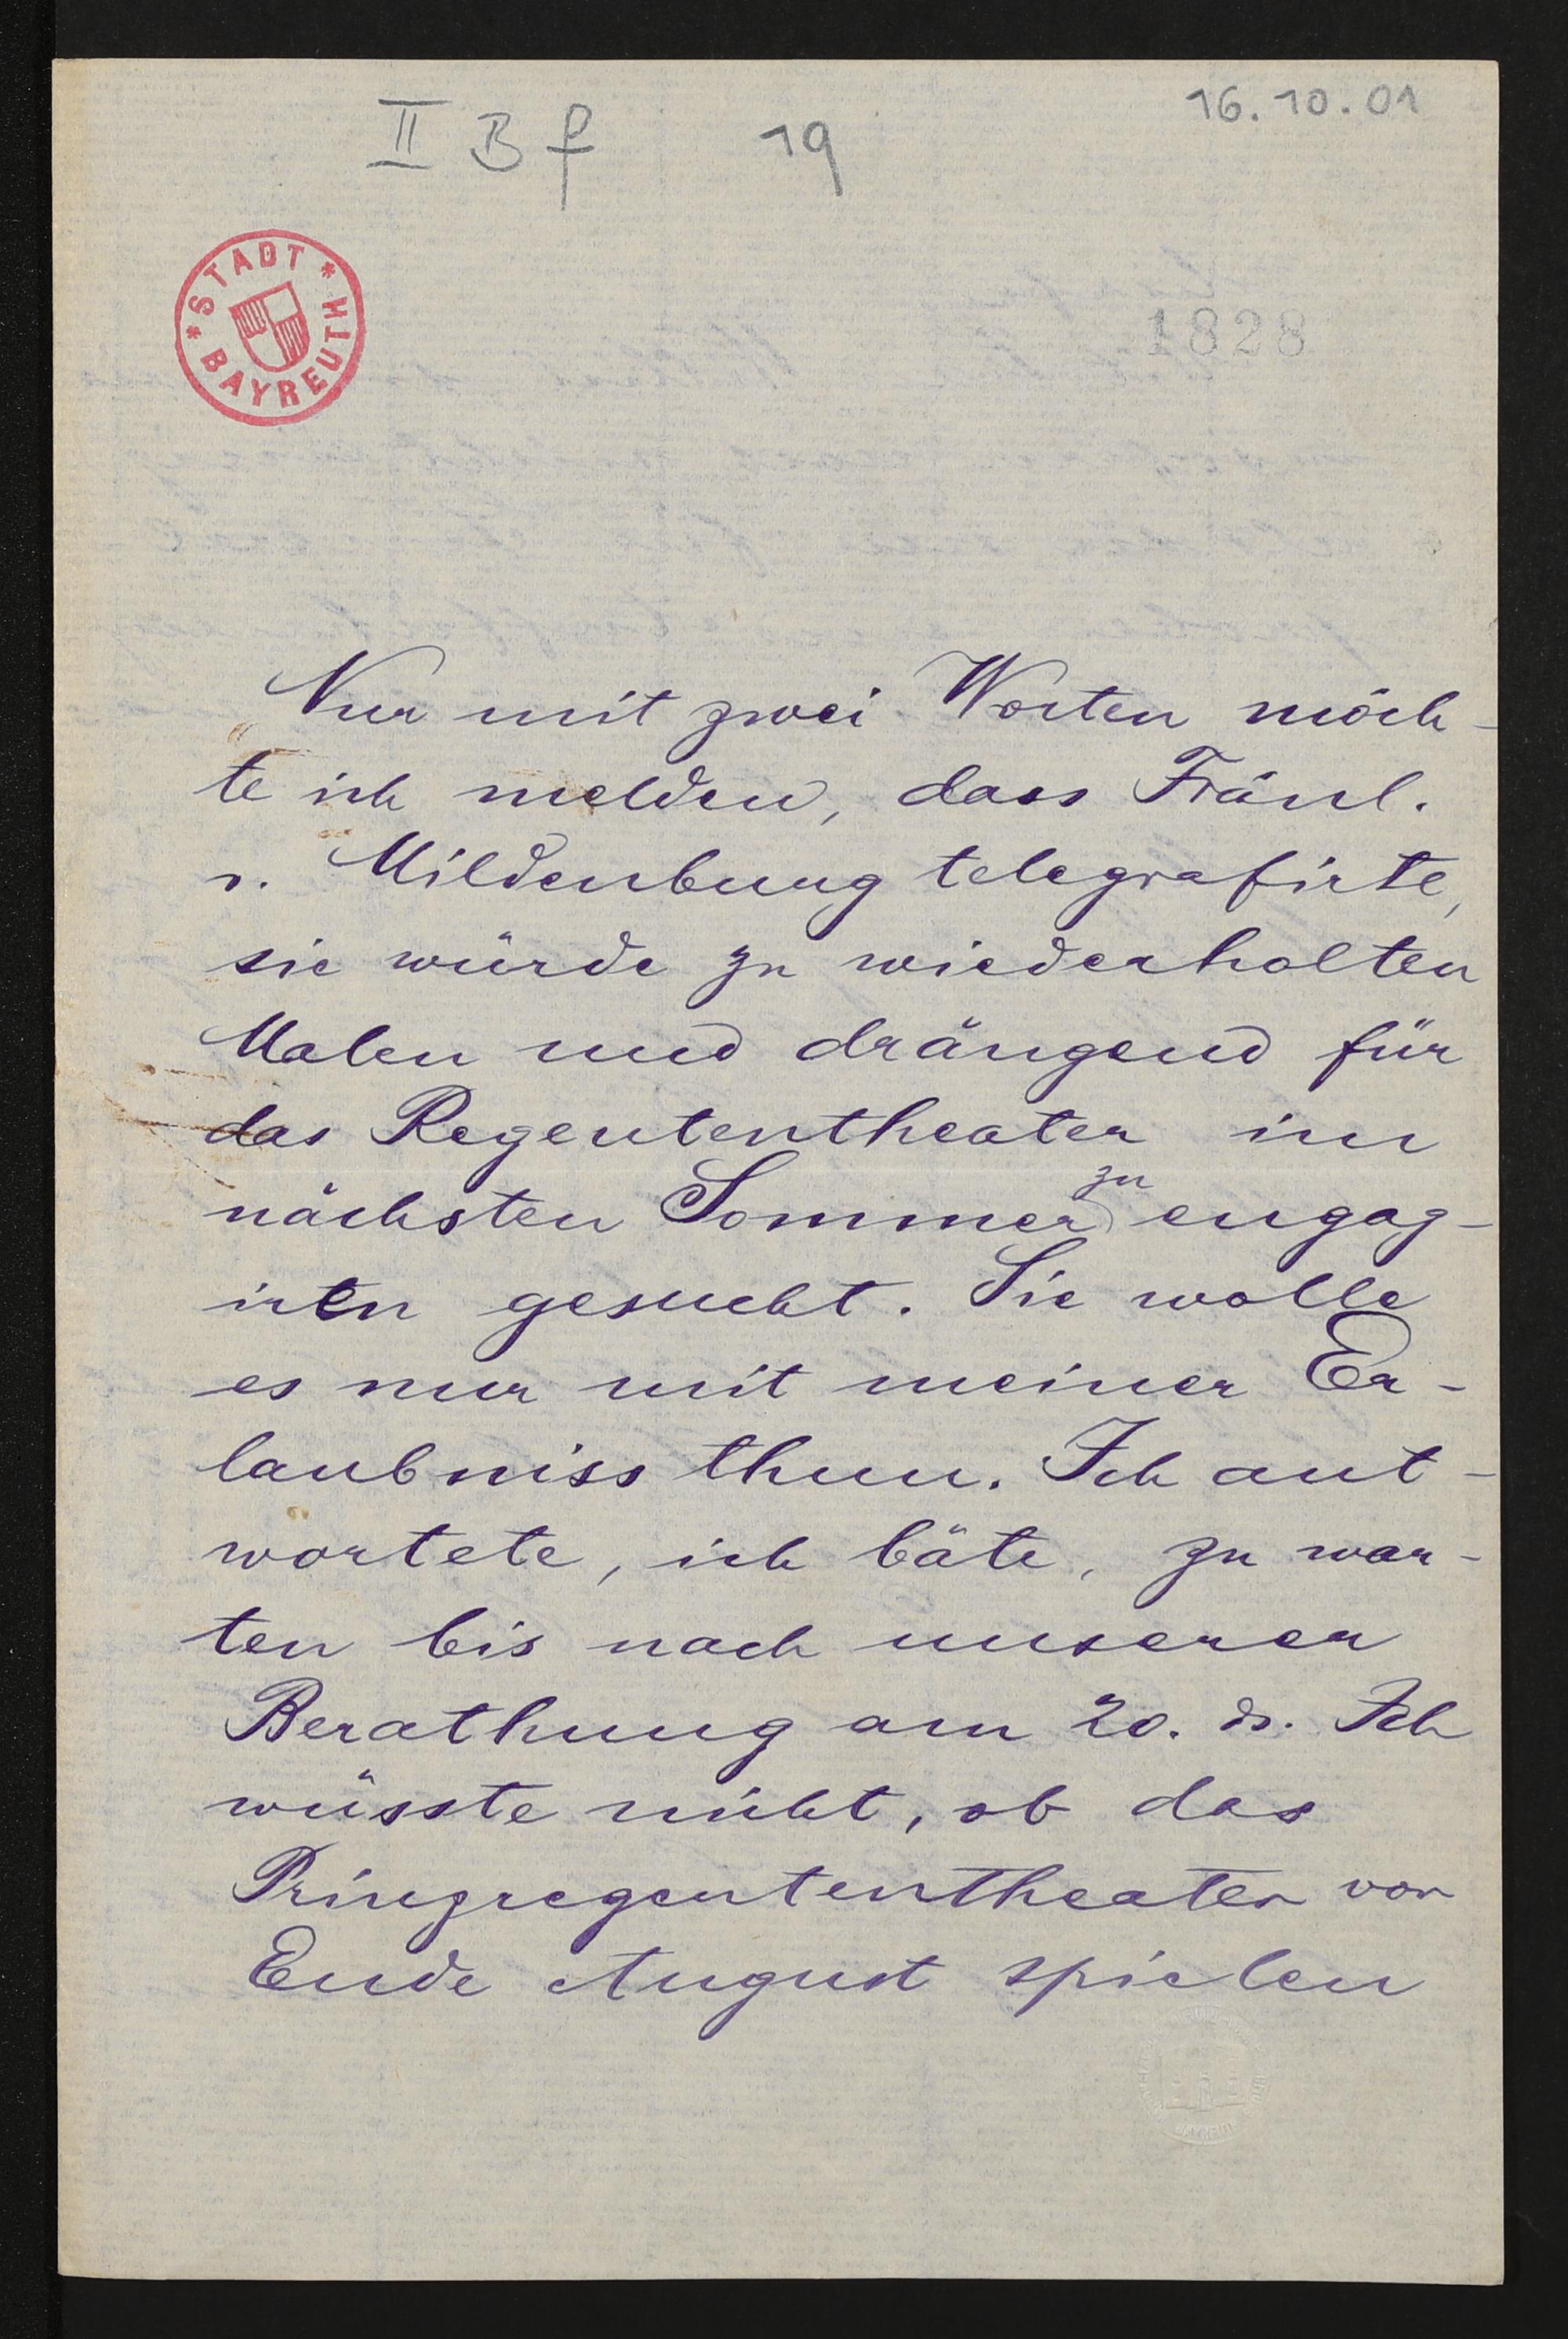 16.10.01
II B f 19
STADT BAYREUTH
1828
Nur mit zwei Worten möch-
te ich melden, dass Fräul.
v. Mildenburg telegrafirte,
sie würde zu wiederholten
Malen und drängend für
das Regententheater im
nächsten Sommer zu engag-
iren gesucht. Sie wolle
es nur mit meiner Er-
laubniss thun. Ich ant-
wortete, ich bäte, zu war-
ten bis nach unserer
Berathung am 20. ds. Ich
wüsste nicht, ob das
Prinzregententheater vor
Ende August spielen